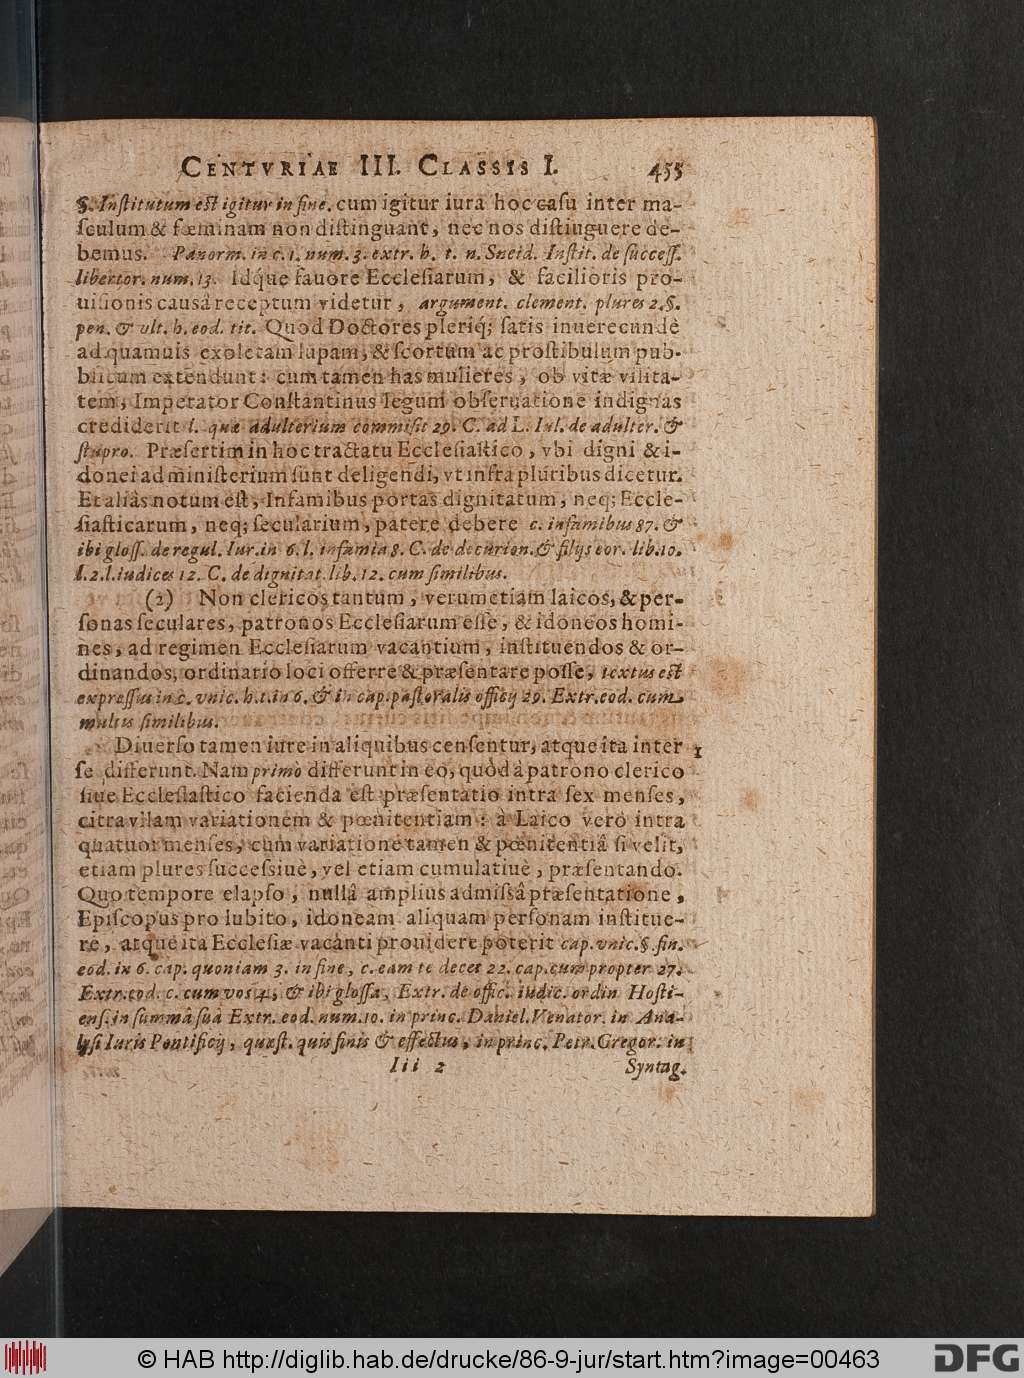 CENTVRIAE III. CLASSIS I. 455
§. Inſtitutum eſt igitur in fine. cum igitur iura hoc caſu inter ma-
ſculum & fæminam non diſtinguant, nec nos diſtinguere de-
bemus. Panorm. in c. 1. num. 3. extr. h. t. n. Sneid. Inſtit. de ſucceſſ.
libertor. num. 13. idq́ue fauore Eccleſiarum, & facilioris pro-
uiſionis causâ receptum videtur, argument. clement. plures 2. §.
pen. & ult. h. eod. tit. Quod Doctores pleriq́; ſatis inuerecundè
ad quamuis exoletam lupam, & ſcortum ac proſtibulum pub-
blicum extendunt: cum tamen has mulieres, ob vitæ vilita-
tem, Imperator Conſtantinus legum obſeruatione indignas
crediderit l. quæ adulterium commiſit 29. C. ad L. Iul. de adulter. &
ſtupro. Præſertim in hoc tractatu Eccleſiaſtico, vbi digni & i-
donei ad miniſterium ſunt deligendi, vt infra pluribus dicetur.
Et aliàs notum eſt, Infamibus portas dignitatum, neq; Eccle-
ſiaſticarum, neq; ſecularium, patere debere c. infamibus 87. &
ibi gloſſ. de regul. Iur. in 6. l. infamia 8. C. de decurion. & filijs eor. lib. 10.
l. 2. l. iudices 12. C. de dignitat. lib. 12. cum ſimilibus.
(2) Non clericos tantum, verum etiam laicos, & per-
ſonas ſeculares, patronos Eccleſiarum eſſe, & idoneos homi-
nes, ad regimen Eccleſiarum vacantium, inſtituendos & or-
dinandos, ordinario loci offerre & præſentare poſſe, textus eſt
expreſſus in c. vnic. h. t. in 6. & in cap. paſtoralis officij 29. Extr. eod. cum
multis ſimilibus.
Diuerſo tamen iure in aliquibus cenſentur, atque ita inter 1
ſe differunt. Nam primò differunt in eo, quòd à patrono clerico
ſiue Eccleſiaſtico facienda eſt præſentatio intra ſex menſes,
citra vllam variationem & pœnitentiam: à Laico verò intra
quatuor menſes, cum variatione tamen & pœnitentiâ ſi velit,
etiam plures ſucceſsiuè, vel etiam cumulatiuè, præſentando.
Quo tempore elapſo, nullâ amplius admiſsâ præſentatione,
Epiſcopus pro lubito, idoneam aliquam perſonam inſtitue-
re, atque ita Eccleſiæ vacanti prouidere poterit cap. vnic. §. fin.
eod. in 6. cap. quoniam 3. in fine, c. eam te decet 22. cap. cum propter 27.
Extr. eod. c. cum vos 4. & ibi gloſſa, Extr. de offic. iudic. ordin. Hoſti-
enſ. in ſummâ ſuâ Extr. eod. num. 10. in princ. Daniel. Venator. in Ana-
lyſi Iuris Pontificij, quæſt. quis finis & effectus, in princ. Petr. Gregor. in
Iii 2 Syntag.
© HAB http://diglib.hab.de/drucke/86-9-jur/start.htm?image=00463
DFG